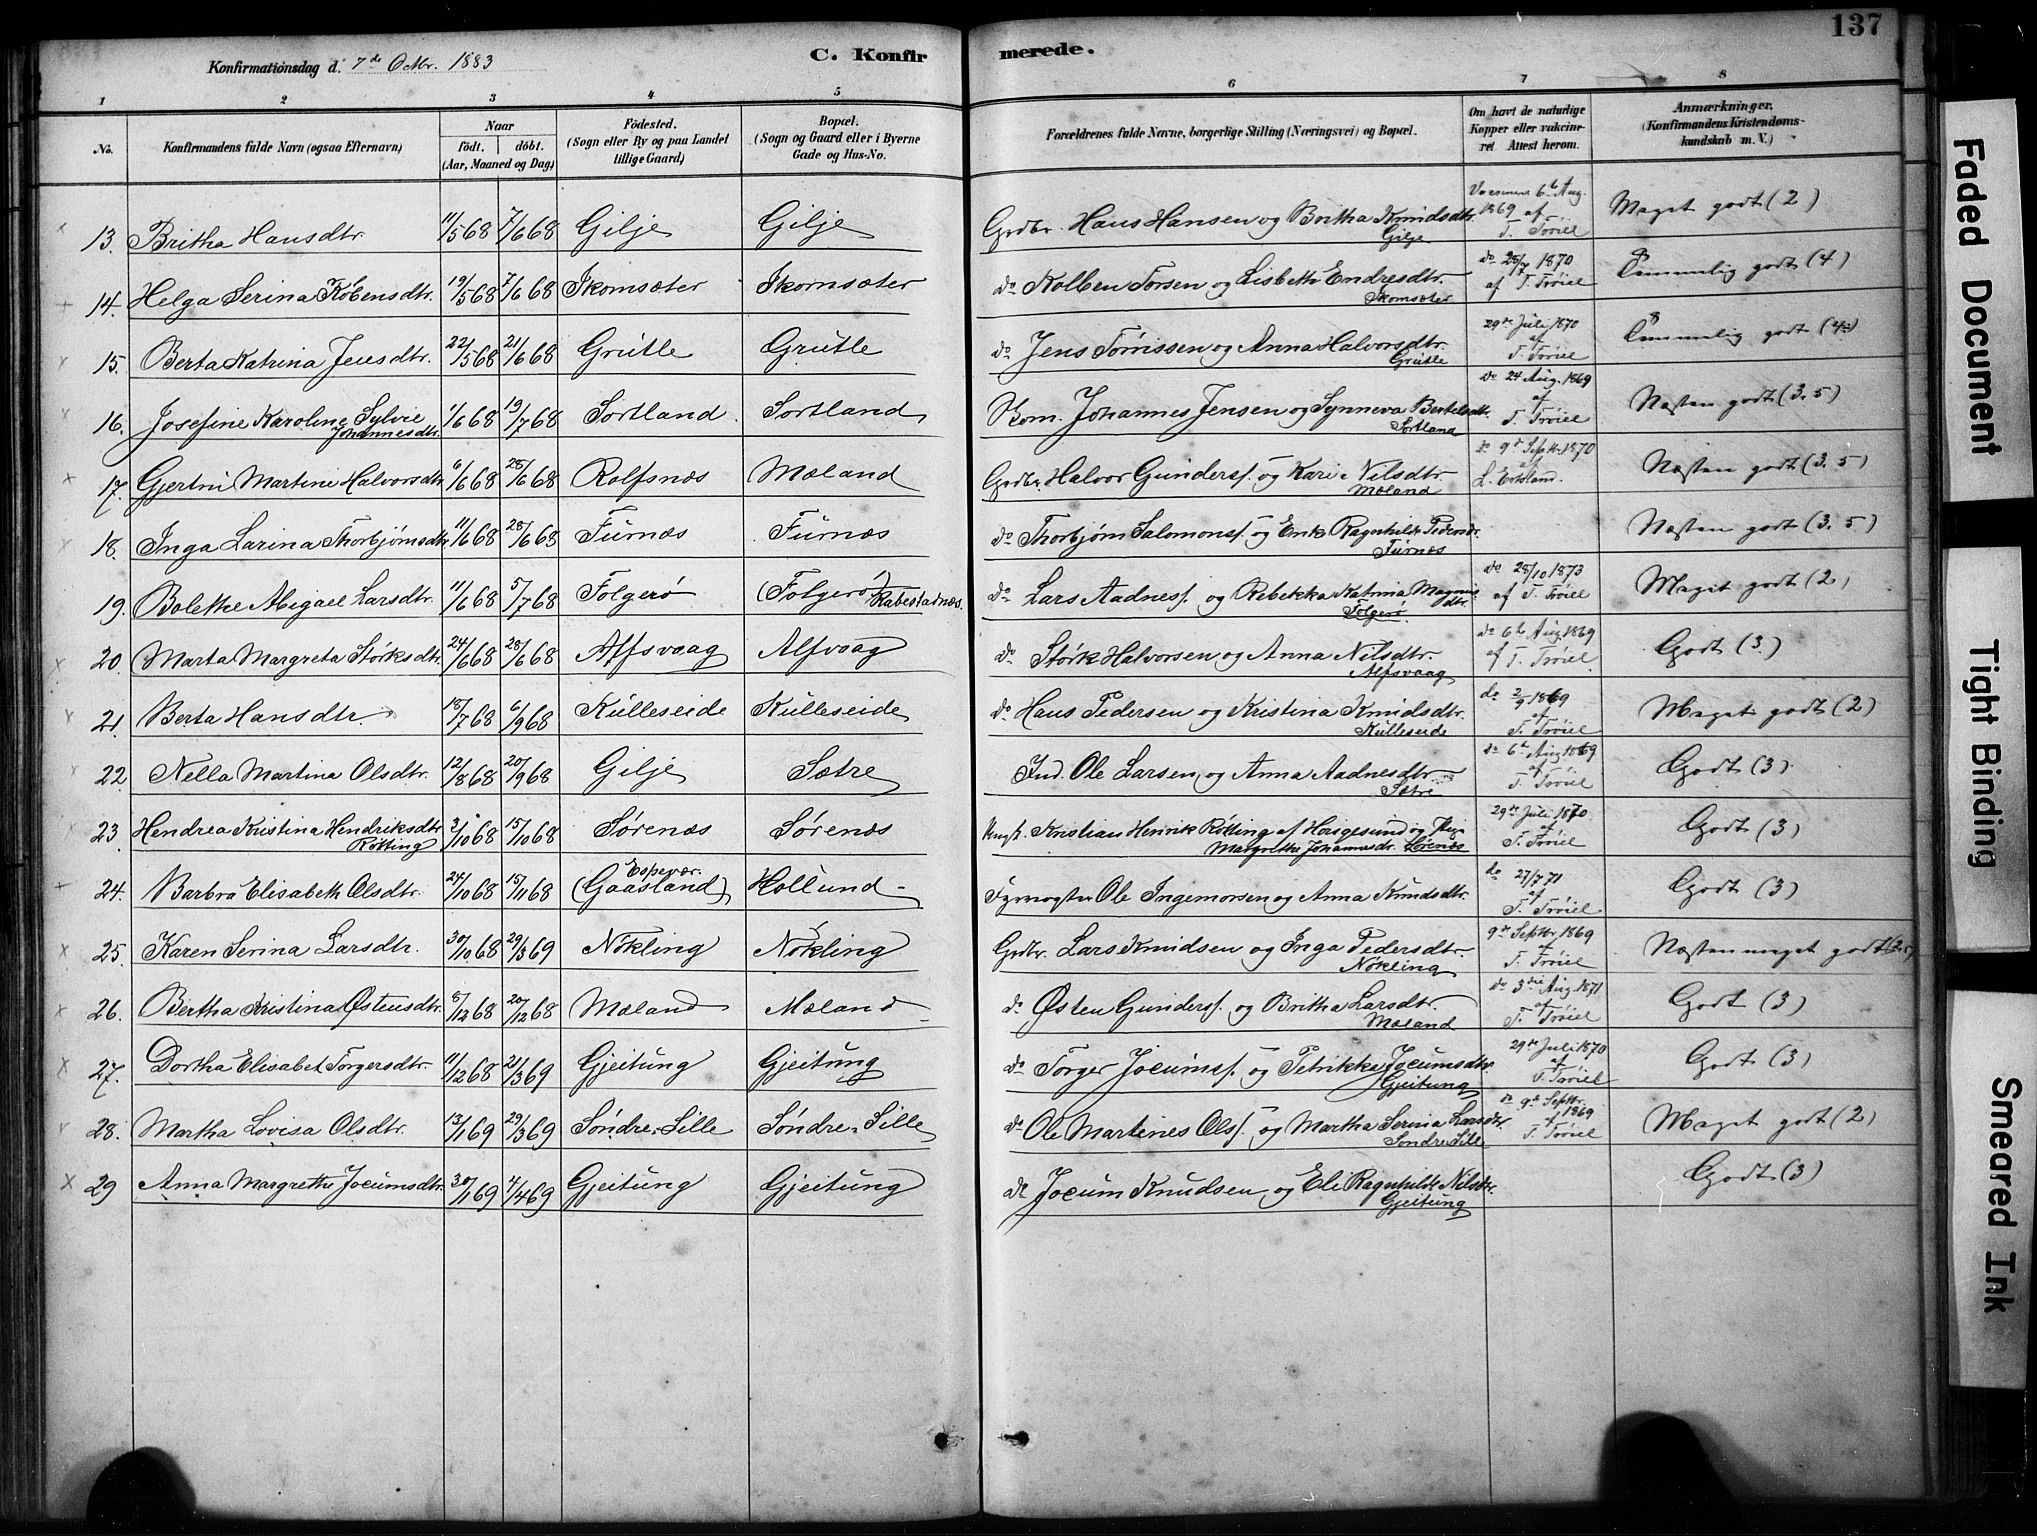 137
Konfirmationsdag d. 7de Octbr. 1883
C. Konfirmerede.
1 2 3 4 5 6 7 8
No.
Konfirmandens fulde Navn (ogsaa Efternavn)
Naar
födt. döbt.
(Aar, Maaned og Dag)
Födested.
(Sogn eller By og paa Landet
tillige Gaard)
Bopæl.
(Sogn og Gaard eller i Byerne
Gade og Hus-No.
Forældrenes fulde Navne, borgerlige Stilling (Næringsvei) og Bopæl.
Om havt de naturlige
Kopper eller vakcine-
ret. Attest herom.
Anmærkninger.
(Konfirmandens Kristendoms-
kundskab m. V.)
13. Britha Hansdtr. 11/5 68 7/6 68 Gilje Gilje Grdbr. Hans Hansen og Britha Knudsdtr. Gilje 6te Aug. 1869 af T. Trøiel Meget godt (2)
14. Helga Serina Kolbensdtr. 19/5 68 7/6 68 Skomsæter Skomsæter do Kolben Torsen og Lisbeth Endresdtr. Skomsæter do 28/7 1870 af T. Trøiel Temmelig godt (4)
15. Berta Katrina Jensdtr. 22/5 68 21/6 68 Grutle Grutle do Jens Tørrissen og Anna Halvorsdtr. Grutle 29de Juli 1870 af T. Trøiel Temmelig godt (4)
16. Josefine Karoline Sylvie Johannesdtr. 1/6 68 19/7 68 Sortland Sortland Kom. Johannes Jensen og Synneva Bertelsdt. Sortland do 24 Aug. 1869 af T. Trøiel Næsten godt (3.5)
17. Gjertru Martine Halvorsdtr. 6/6 68 28/6 68 Rolfsnæs Mæland Grdbr. Halvor Gunders. og Kari Nilsdtr. Mæland do 9de Septbr. 1870 af L. Eitland. Næsten godt (3.5)
18. Inga Larina Thorbjørnsdtr. 11/6 68 28/6 68 Furnæs Furnæs do Thorbjørn Salomons. og Enke Ragnhilde Pedersdr. Furnæs Næsten godt (3.5)
19. Bolette Abigael Larsdtr. 11/6 68 5/7 68 Folgerø (Folgerø) Rabestadnæs. do Lars Aadnes. og Rebekka Katrina Magnus dtr. Folgerø. do 28/10 1873 af T. Trøiel Meget godt (2)
20. Marta Margreta Størksdtr. 24/6 68 28/6 68 Alfsvaag Alfvaag do Størk Halvorsen og Anna Nilsdtr. Alfsvaag do 6te Aug 1869 af T. Trøiel. Godt (3.)
21. Berta Hansdtr. 18/7 68 6/9 68 Kulleseide Kulleseide do Hans Pedersen og Kristina Knudsdtr. Kulleseide do 2/9 1869 af T. Trøiel Meget godt (2)
22 Nella Martina Olsdtr. 12/8 68 20/9 68 Gilje Sætre Ind. Ole Larsen og Anna Aadnesdtr. Sætre do 6te Aug 1869 af T. Trøiel Godt (3)
23. Hendrea Kristina Hendriksdtr. Rötting 3/10 68 15/10 68 Sørenæs Sørenæs Ungk. Kristian Henrik Rötting af Haugesund og Pige Margrethe Johannesdr. Sörenæs 29de Juli 1870 af T. Trøiel Godt (3)
24. Barbra Elisabeth Olsdtr. 24/10 68 15/11 68 Espevær. (Gaasland) Hollund Fyrvogter Ole Ingemorsen og Anna Knudsdtr. do 27/7 71 af T. Trøiel Godt (3)
25. Karen Serina Larsdtr. 30/10 68 29/3 69 Nökling Nökling Grdbr. Lars Knudsen og Inga Pedersdtr. Nökling 9de Septbr. 1869 af T. Trøiel Næsten meget godt (2.5)
26. Bertha Kristina Østensdtr. 8/12 68 20/12 68 Mæland Mæland do Østen Gunders. og Britha Larsdtr. Mæland do 3die Aug. 1871 af T. Trøiel Godt (3)
27. Dortha Elisabet Torgersdtr. 11/12 68 21/3 69 Gjeitung Gjeitung do Torger Jocums. og Petrikke Jocumsdtr. Gjeitung 29de Juli 1870 af T. Trøiel Godt (3)
28. Martha Lovisa Olsdtr. 13/1 69 29/3 69 Søndre-Lille Søndre-Lille do Ole Martines Ols. og Martha Serina Larsdtr. Søndre Lille do 9de Septbr. af 1869 T. Trøiel Meget godt (2)
29 Anna Margrethe Jocumsdtr. 30/1 69 4/4 69 Gjeitung Gjeitung do Jocum Knudsen og Eli Ragnhilde Nilsdtr. Gjeitung Godt (3)
Faded Document
Tight Binding
Smeared Ink